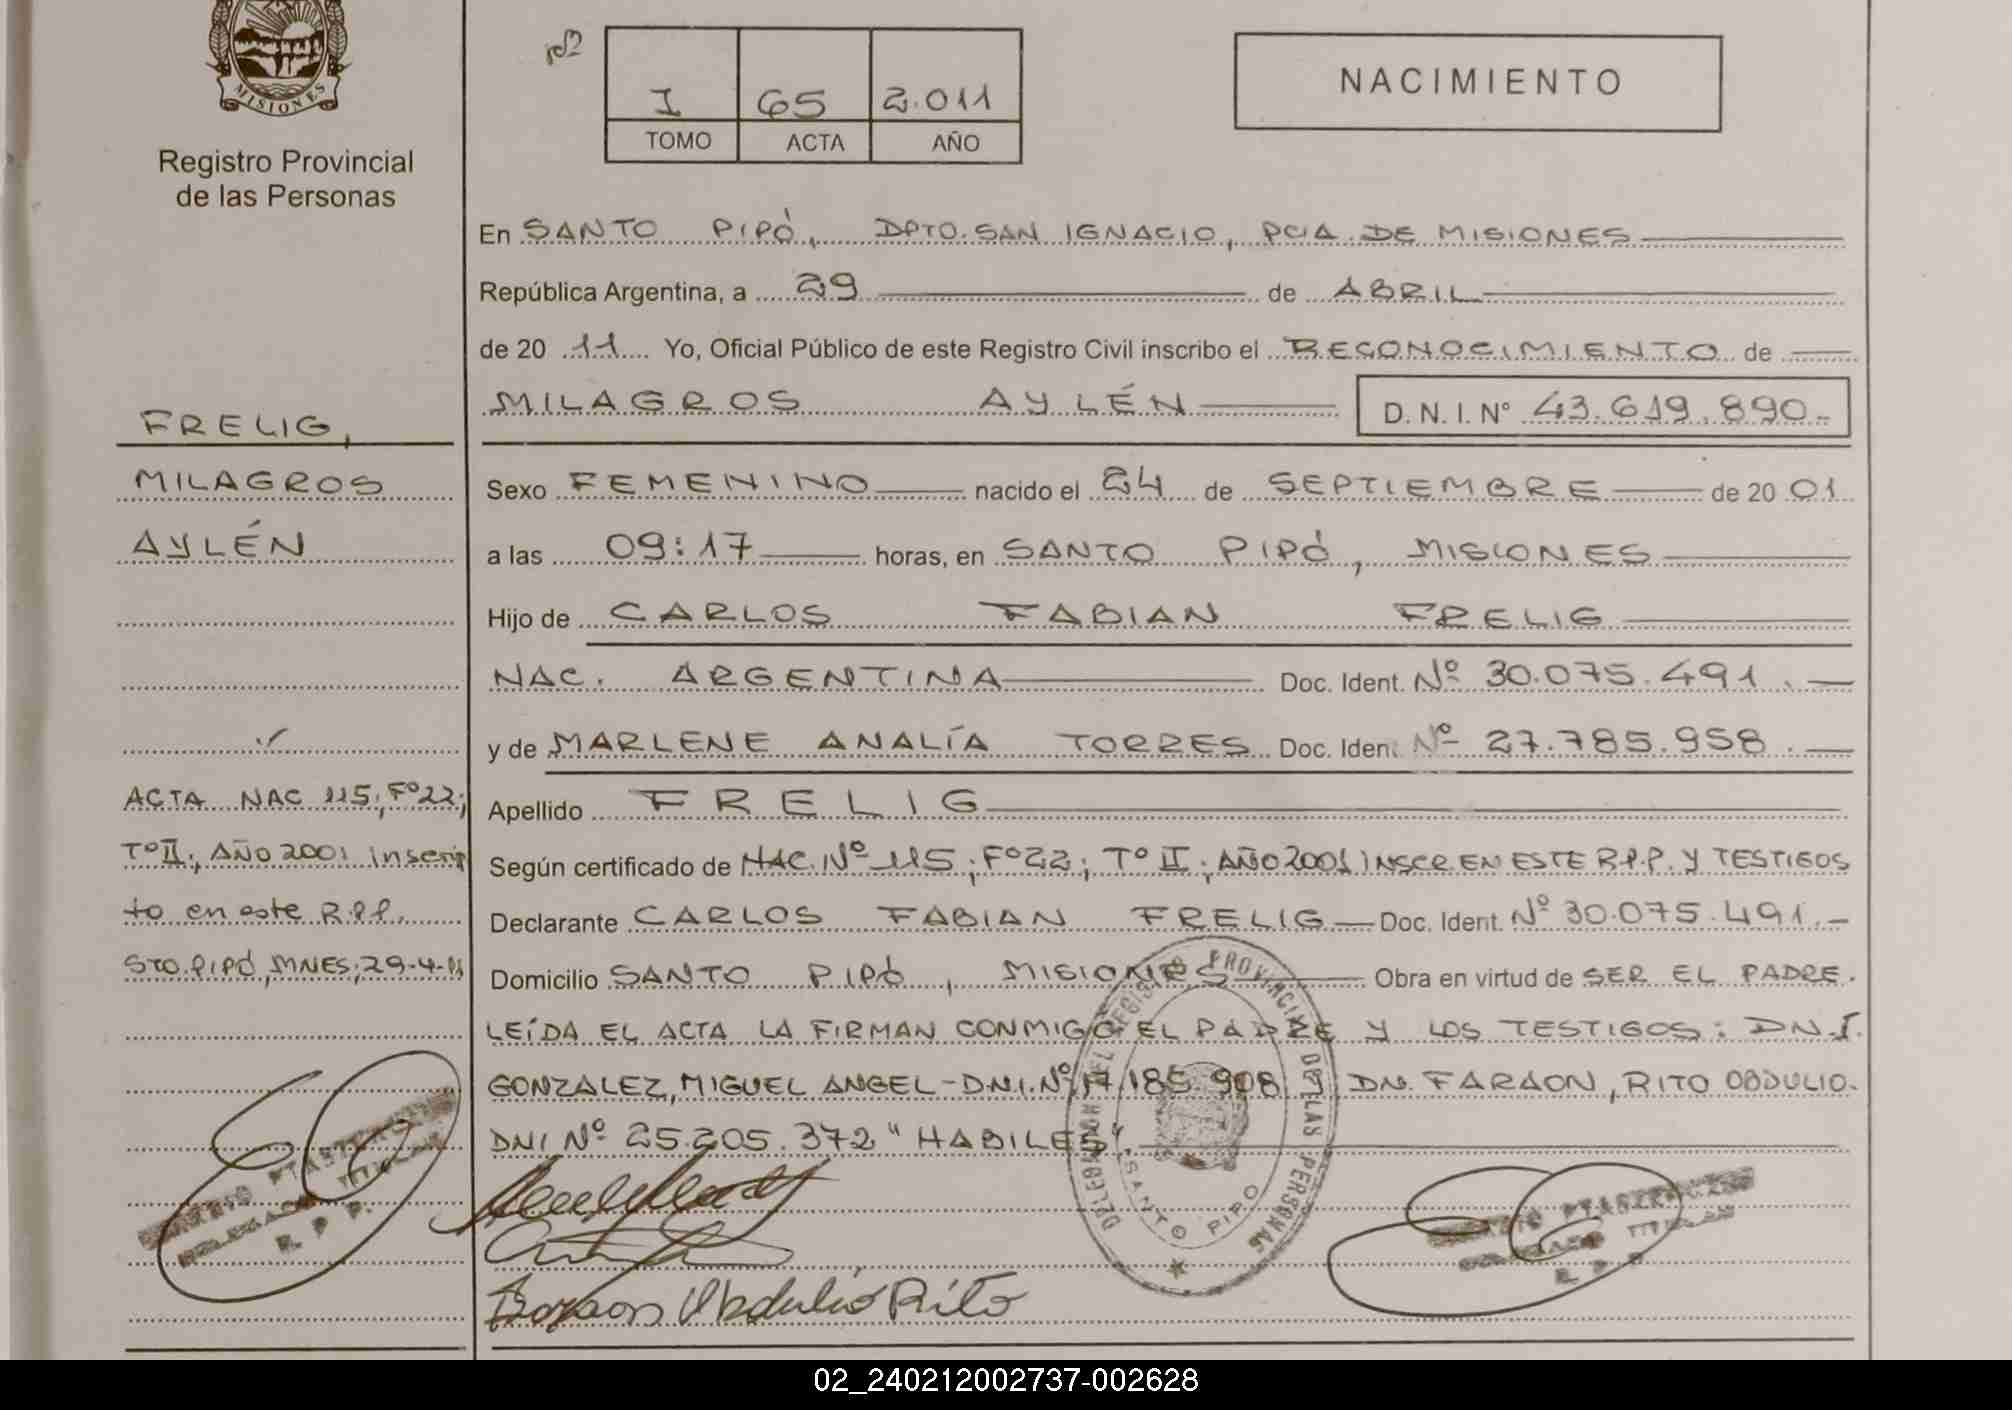 MISIONES
Registro Provincial
de las Personas
I 65 2.011
TOMO ACTA AÑO
NACIMIENTO
En SANTO PIPÓ, DPTO. SAN IGNACIO, PCIA. DE MISIONES
República Argentina, a 29 de ABRIL
de 20 11 Yo, Oficial Público de este Registro Civil inscribo el RECONOCIMIENTO de
MILAGROS AYLÉN D. N. I. N° 43.619.890.-
FRELIG,
MILAGROS
AYLÉN
Sexo FEMENINO nacido el 24 de SEPTIEMBRE de 20 01
a las 09:17 horas, en SANTO PIPÓ, MISIONES
Hijo de CARLOS FABIAN FRELIG
NAC. ARGENTINA Doc. Ident. Nº 30.075.491.
y de MARLENE ANALÍA TORRES Doc. Iden. Nº 27.785.958.
Apellido FRELIG
Según certificado de NAC. Nº 115; Fº22; Tº II; AÑO 2001 INSCR. EN ESTE R.P.P. Y TESTIGOS
Declarante CARLOS FABIAN FRELIG Doc. Ident. Nº 30.075.491.-
Domicilio SANTO PIPÓ, MISIONES Obra en virtud de SER EL PADRE.
LEÍDA EL ACTA LA FIRMAN CONMIGO EL PADRE Y LOS TESTIGOS: DN.
GONZALEZ, MIGUEL ANGEL - D.N.I. Nº 17.185.908 Y DN. FARAON, RITO OBDULIO.
DNI Nº 25.205.372 "HABILES".
ACTA NAC 115; Fº22;
Tº II; AÑO 2001 inscrip
to en este R.P.P.
STO. PIPÓ, MNES; 29-4-11
DELEGACION DEL REGISTRO PROVINCIAL DE LAS PERSONAS
SANTO PIPO
TITULAR
R. P. P.
Obdulio Rito
TITULAR
R P P
02_240212002737-002628